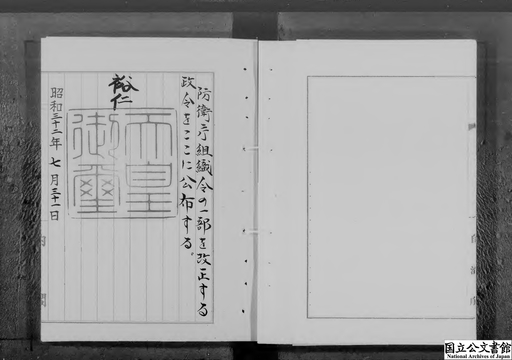 防衛庁組織令の一部を改正する
政令をここに公布する。
裕仁
天皇
御璽
昭和三十二年七月三十一日
内閣
国立公文書館
National Archives of Japan